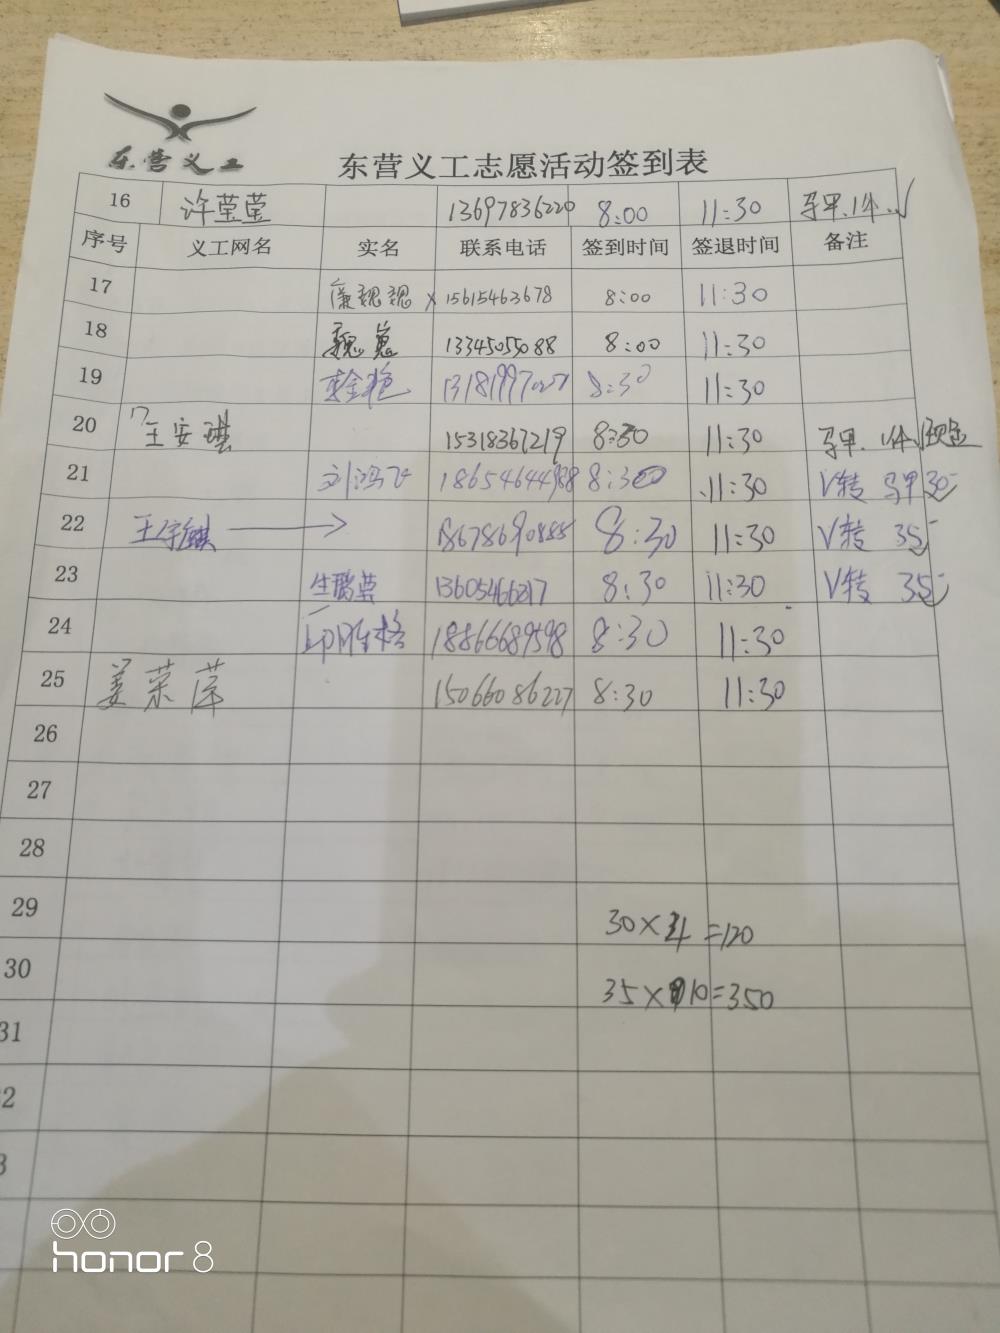 东营义工
东营义工志愿活动签到表
16 许莹莹 13697836220 8:00 11:30 马甲.1件.√
序号 义工网名 实名 联系电话 签到时间 签退时间 备注
17 廉魏魏 x 15615463678 8:00 11:30
18 魏 13345055088 8:00 11:30
19 8:30 11:30
20 王安琪 15318367219 8:30 11:30 马甲.1件 现金
21 刘鸿飞 18654644988 8:300 11:30 V转 马甲30
22 王宇麒 → 8:30 11:30 V转 35
23 13605466317 8:30 11:30 V转 35
24 18866689598 8:30 11:30
25 姜荣萍 15066086227 8:30 11:30
26
27
28
29 30×4=120
30 35×10=350
31
2
3
honor 8